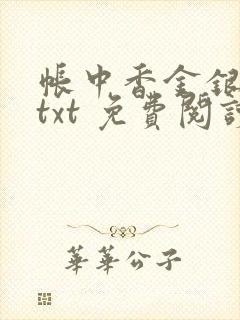 帳中香金銀
txt 免費閱讀
華華公子